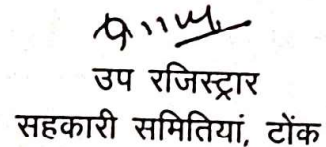 उप रजिस्ट्रार
सहकारी समितियां, टोंक